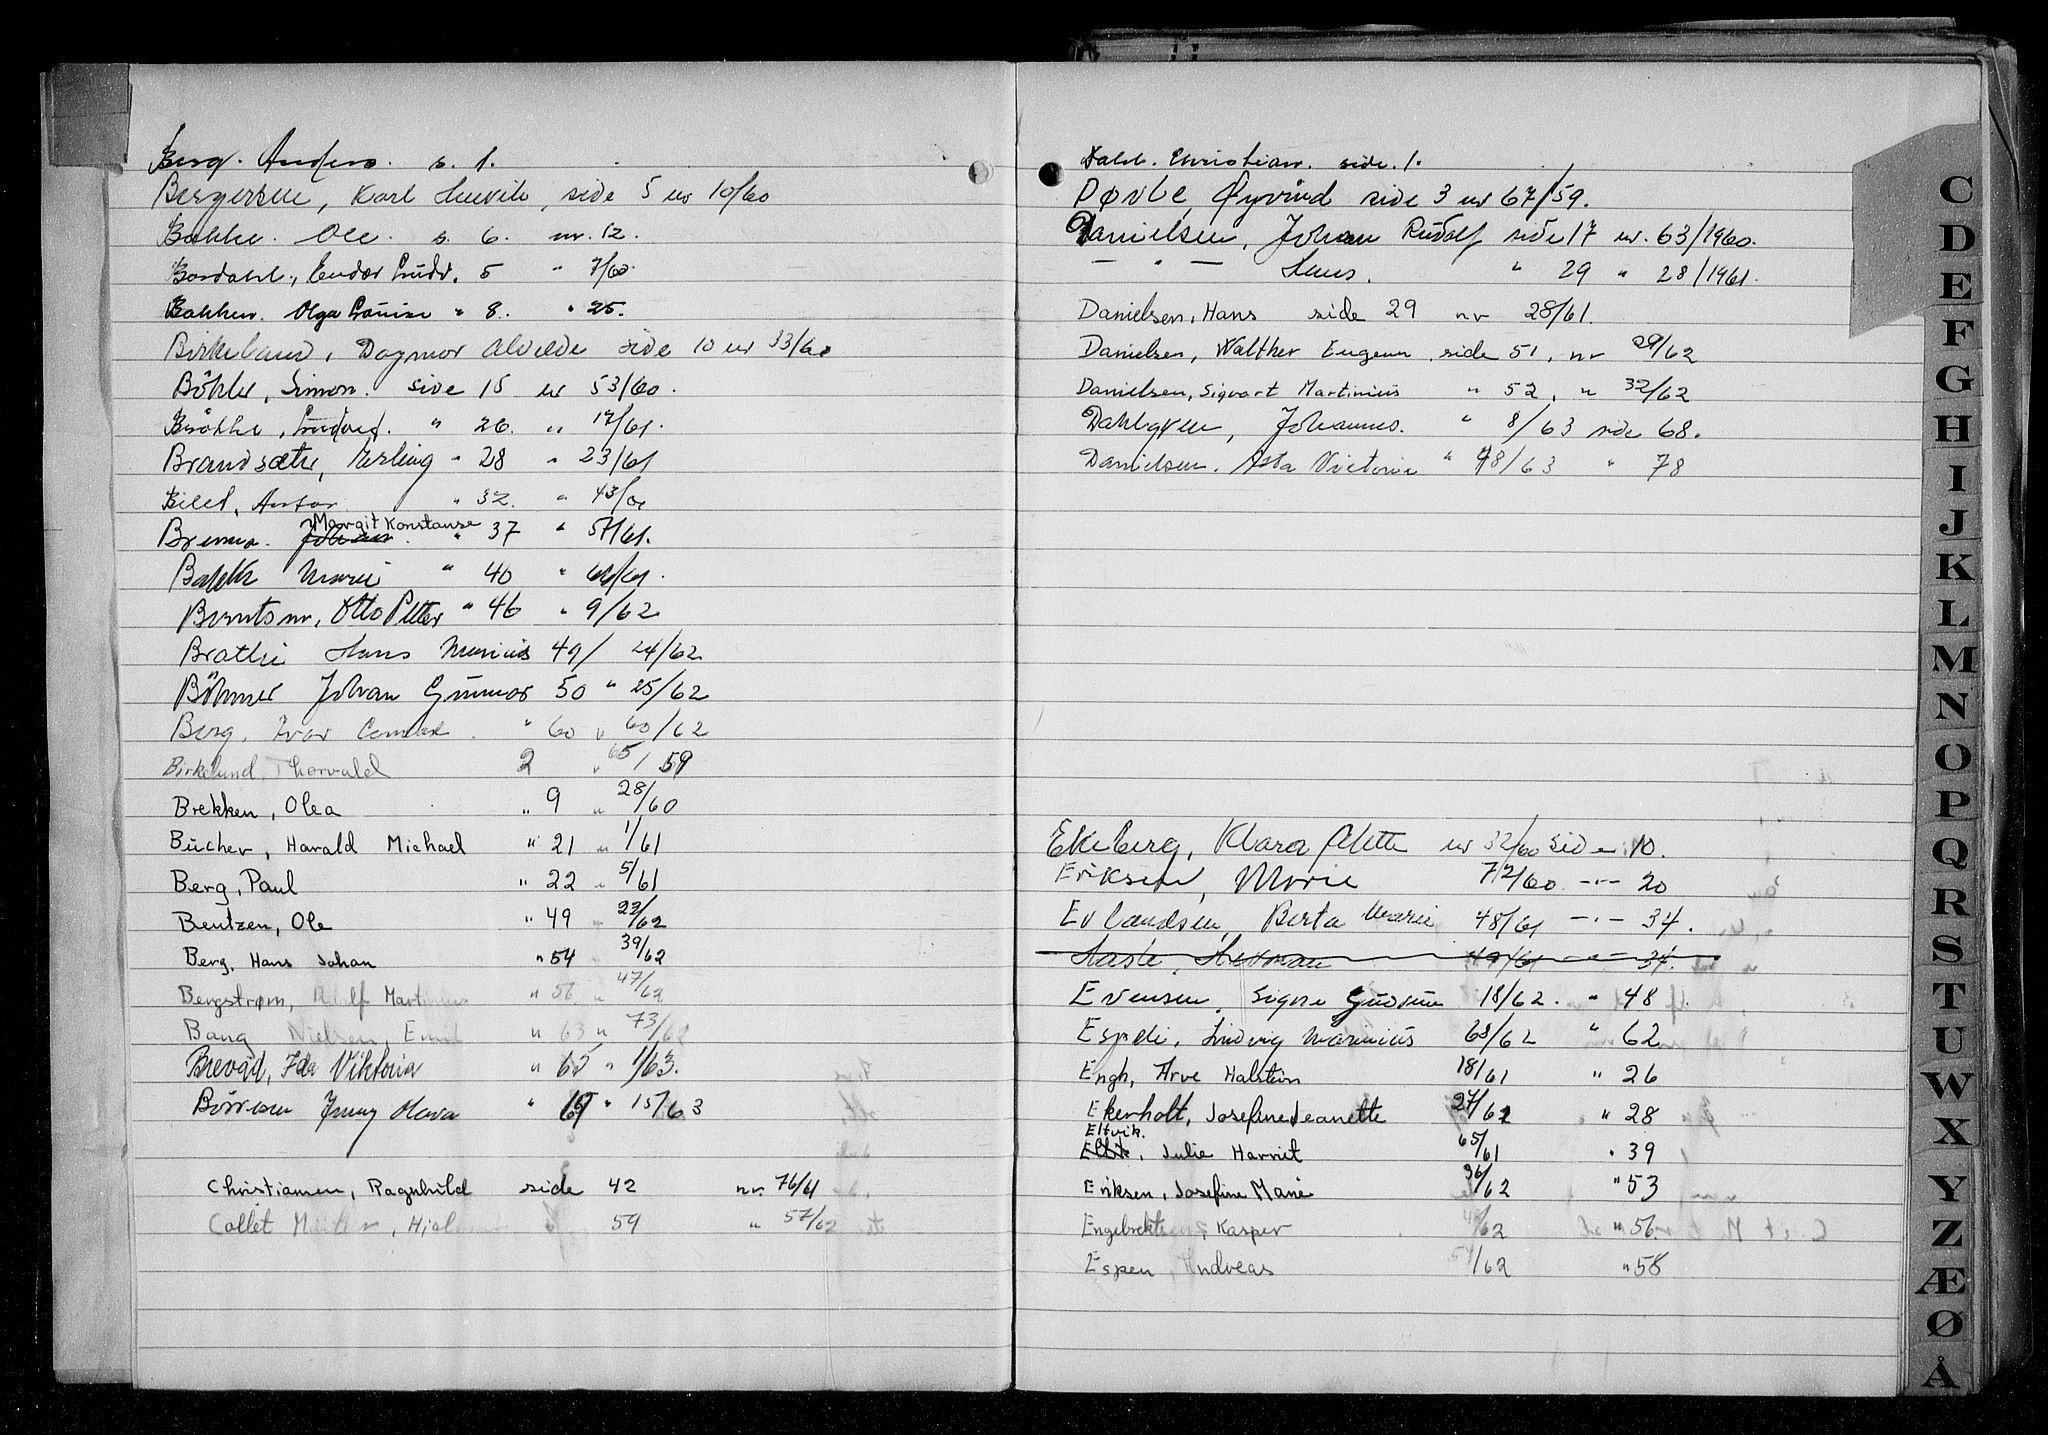 Berg. Anders. s. 1.
Bergersen, Karl Henrik, side 5 nr 10/60
Bakke. Ole. s. 6. nr. 12.
5 " 7/60.
Bakken. Olga Louise " 8. " 25.
Birkeland, Dagmar Alvilde side 10 nr 33/60
Böhler, Simon. side 15 nr 53/60.
" 26. " 17/61.
Brandsæter, Erling " 28 " 23/61
Anton " 32. " 43/61
Margit Konstanse
Brenna. Johan " 37 " 57/61.
Bakke Marie " 40 " /61.
Berntsen, Otto Petter " 46 " 9/62
Brathe Hans Marius 49/ 24/62
Böhmer Johan Gunnar 50 " 25/62
Berg, Ivar " 60 " 60/62
Birkelund, Thorvald 2 " 65/59
Brekken, Olea " 9 " 28/60
Bücher, Harald Michael " 21 " 1/61
Berg, Paul " 22 " 5/61
Bentzen, Ole " 49 " 23/62
Berg, Hans Johan " 54 " 39/62
Bergstrøm, Adolf Martinius " 56 " 47/62
Bang Nielsen, Emil " 63 " 73/62
Brevad, Ida Viktoria " 65 " 1/63.
Börresen Jenny Oleva " " 15/63
Christiansen, Ragnhild side 42 nr. 76/61
Collet 59 " 57/62
Dahl. Christian. side. 1.
DØVLE, Øyvind side 3 nr 67/59.
Danielsen, Johan Rudolf side 17 nr. 63/1960.
— " — Hans. " 29 " 28/1961.
Danielsen, Hans side 29 nr 28/61.
Danielsen, Walther Eugen side 51, nr 29/62
Danielsen, Sigvart Martinius " 52, " 32/62
Dahlgren, Johannes. " 8/63 side 68.
Danielsen. Asta Victoria " 48/63 " 78
Ekeberg, Klara Alette nr 32/60 side 10.
Eriksen, Marie 72/60 -"- 20
Evlandsen, Berta Marie 48/61 -"- 34.
Haste, Herman 49/61 -"- 34.
Evensen, Signe Gudrun 18/62. " 48
Espeli, Ludvig Marinius 68/62 " 62
Engh, Arve Halstein 18/61 " 26
Ekerholt, Josefine Jeanette 27/61 " 28
Eltvik.
, Julie Harriet 65/61 " 39
Eriksen, Josefine Marie 36/62 " 53
Engebrektsen, Kasper /62 " 56.
Espen, Andreas /62 " 58
C
D
E
F
G
H
I
J
K
L
M
N
O
P
Q
R
S
T
U
W
X
Y
Z
Æ
Ø
Å